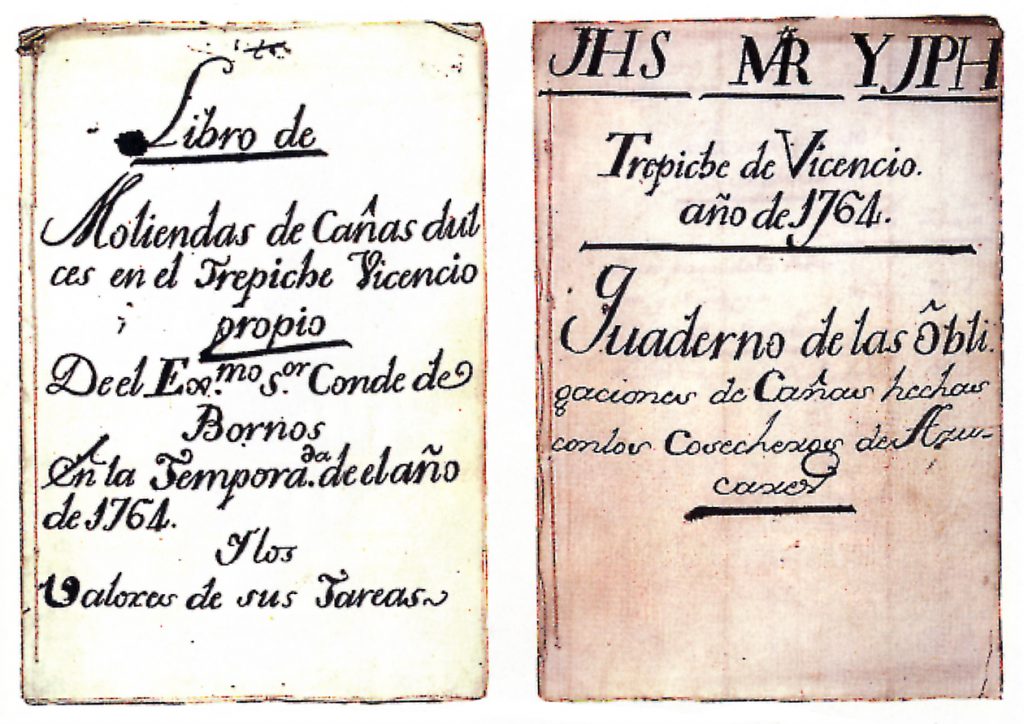 Libro de
Moliendas de Cañas dul
ces en el Trepiche Vicencio
propio
De el Exmo. Sor. Conde de
Bornos
En la Temporada. de el año
de 1764.
Y los
Valores de sus Tareas
JHS MR Y JPH
Trepiche de Vicencio.
año de 1764.
Quaderno de las õbli.
gaciones de Cañas hechas
con los Cosecheros de Azu-
cares